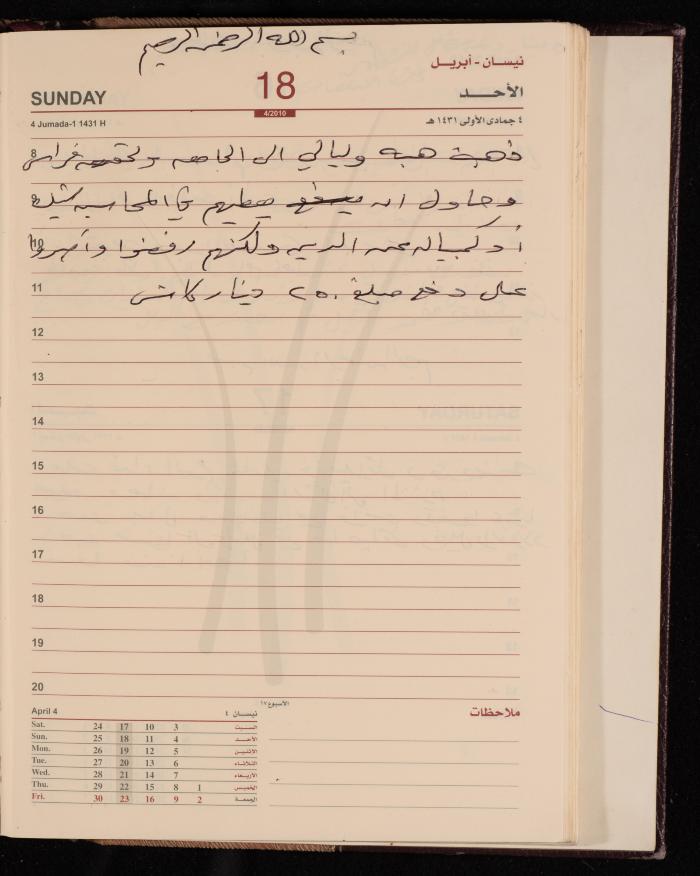 بسم الله الرحمن الرحيم
نيسان - أبريل
SUNDAY 18 الأحـــد
4/2010
4 Jumada-1 1431 H ٤ جمادى الأولى ١٤٣١ هـ
8 ذهبت هبه وليالي الى الجامعه ولحقهم فراس
9 وحاول ان يدفع يعطيهم في المحاسبه شيك
10 أو كمبياله عن الدين ولكنهم رفضوا وأصروا
11 على دفع مبلغ ٢٥٠ دينار كاش
12
13
14
15
16
17
18
19
20
April 4 نيسان ٤
الأسبوع ١٧
ملاحظات
Sat. 24 17 10 3 السبت
Sun. 25 18 11 4 الأحد
Mon. 26 19 12 5 الأثنين
Tue. 27 20 13 6 الثلاثاء
Wed. 28 21 14 7 الأربعاء
Thu. 29 22 15 8 1 الخميس
Fri. 30 23 16 9 2 الجمعة